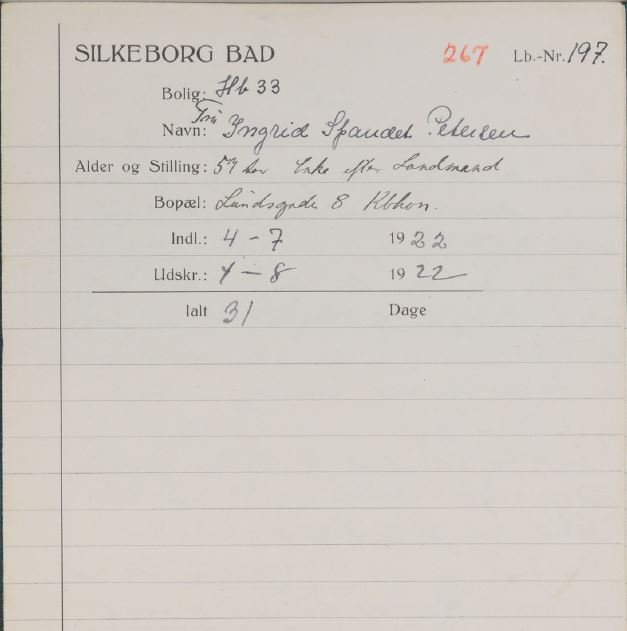 SILKEBORG BAD 267 Lb.-Nr. 197.
Bolig: Hb 33
Fru
Navn: Ingrid Spandet Petersen
Alder og Stilling: Enke efter Landmand
Bopæl: Lundsgade 8 Kbhvn.
Indl.: 4 - 7 1922
Udskr.: 4 - 8 1922
Ialt 31 Dage